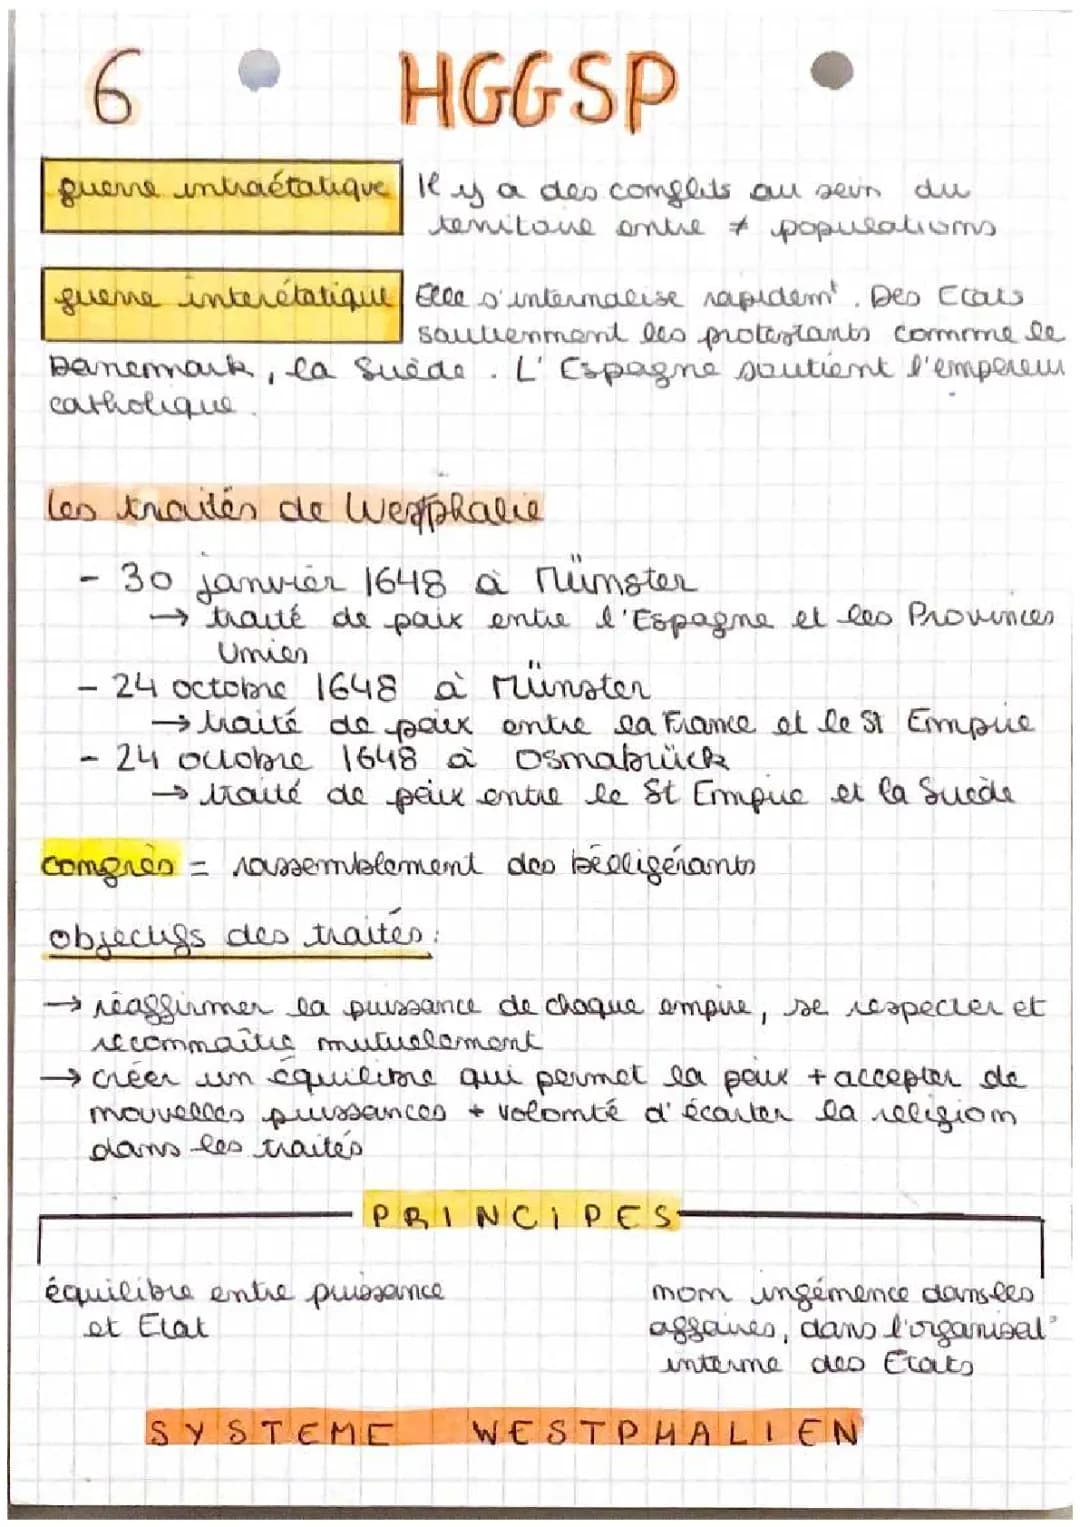 6 HGGSP
guerre intraétatique Il y a des conflits au sein du
territoire entre ≠ populations
guerre interétatique Elle s'internalise rapidemt. Des Etats
soutiennent les protestants comme le
Danemark, la Suède. L'Espagne soutient l'empereur
catholique.
les traités de Westphalie
- 30 janvier 1648 à Münster
→ traité de paix entre l'Espagne et les Provinces
Unies
- 24 octobre 1648 à Münster
→ traité de paix entre la France et le St Empire
- 24 octobre 1648 à Osnabrück
→ traité de paix entre le St Empire et la Suède
congrès = rassemblement des belligérants
objectifs des traités :
→ réaffirmer la puissance de chaque empire, se respecter et
reconnaître mutuelement
→ créer un équilibre qui permet la paix + accepter de
nouvelles puissances + volonté d'écarter la religion
dans les traités
PRINCIPES
équilibre entre puissance
et Etat
non ingérence dans les
affaires, dans l'organisat°
interne des Etats
SYSTEME WESTPHALIEN